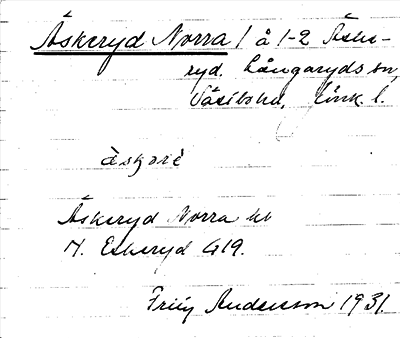 Äskeryd Norra 1 å 1-2 Äske-
ryd. Långaryds sn,
Västbo hd, Jönk. l.
Äskeryd Norra
N. Eskeryd G19.
Andersson 1931.